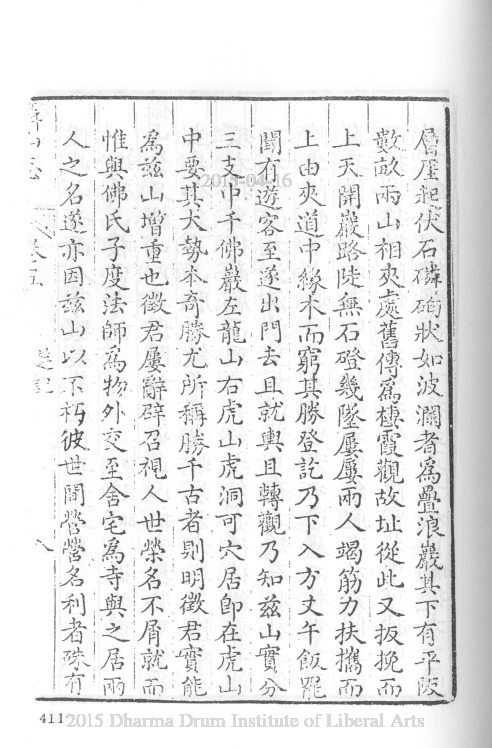 層厓起伏石磷磷狀如波瀾者為疊浪巖其下有平陂
數畝兩山相夾處舊傳為棲霞觀故址從此又扳挽而
上天開巖路陡無石磴幾墜屢屢兩人竭筋力扶攜而
上由夾道中緣木而窮其勝登訖乃下入方丈午飯罷
聞有遊客至遂出門去且就輿且轉觀乃知茲山實分
三支中千佛巖左龍山右虎山虎洞可穴居即在虎山
中要其大勢本奇勝尤所稱勝千古者則明徵君實能
為茲山增重也徵君屢辭辟召視人世榮名不屑就而
惟與佛氏子度法師為物外交至舍宅為寺與之居兩
人之名遂亦因茲山以不朽彼世間營營名利者殊有
卷五
遊記
八
2015-04-16
411
2015 Dharma Drum Institute of Liberal Arts